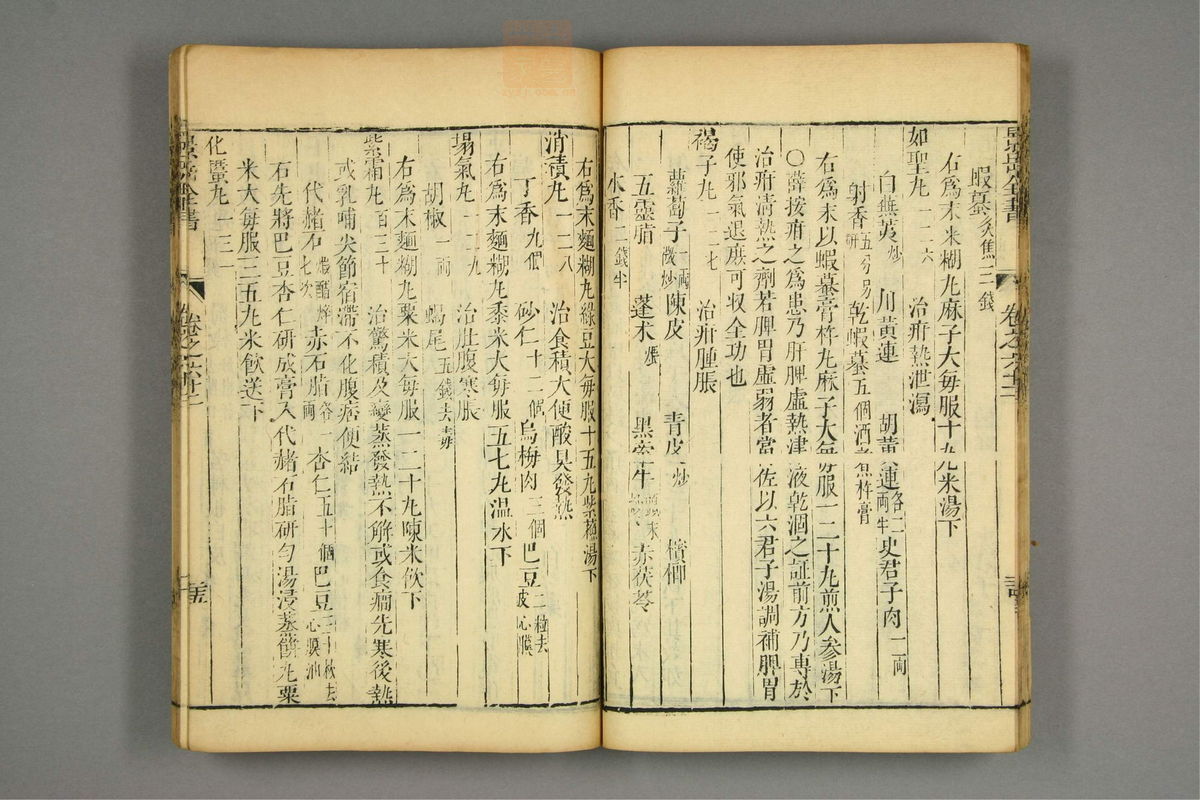 景岳全書
卷之六十二
蝦蟇炙焦三錢
右爲末米糊丸麻子大每服十九丸米湯下
如聖丸一二六 治疳熱泄瀉
白蕪荑炒 川黃連 胡黃連各二兩半 史君子肉一兩
射香五分另研 乾蝦蟇五個酒煮杵膏
右爲末以蝦蟇膏杵丸麻子大每服一二十丸煎人參湯下
〇薛按疳之爲患乃肝脾虛熱津液乾涸之証前方乃專於
治疳清熱之劑若脾胃虛弱者當佐以六君子湯調補脾胃
使邪氣退庶可収全功也
褐子丸一二七 治疳腫脹
蘿蔔子一兩微炒 陳皮 青皮炒 檳榔
五靈脂 蓬术煨 黑牽牛 末 赤茯苓
木香二錢半
右爲末麵糊丸綠豆大每服十五丸紫蘇湯下
消積丸一二八 治食積大便酸臭發熱
丁香九個 砂仁十二個 烏梅肉三個 巴豆二粒去皮心膜
右爲末麵糊丸黍米大每服五七丸温水下
塌氣丸一二九 治肚腹寒脹
胡椒一兩 蝎尾五錢去毒
右爲末麵糊丸粟米大每服一二十丸陳米飲下
紫霜丸百三十 治驚積及變蒸發熱不解或食癇先寒後熱
或乳哺失節宿滯不化腹痞便結
代赭石煆醋焠七次 赤石脂各一兩 杏仁五十個 巴豆三十枚去心膜油
右先將巴豆杏仁研成膏入代赭石脂研匀湯浸蒸餅丸粟
米大每服三五丸米飲送下
化䘌丸一三一
景岳全書
卷之六十二
三五